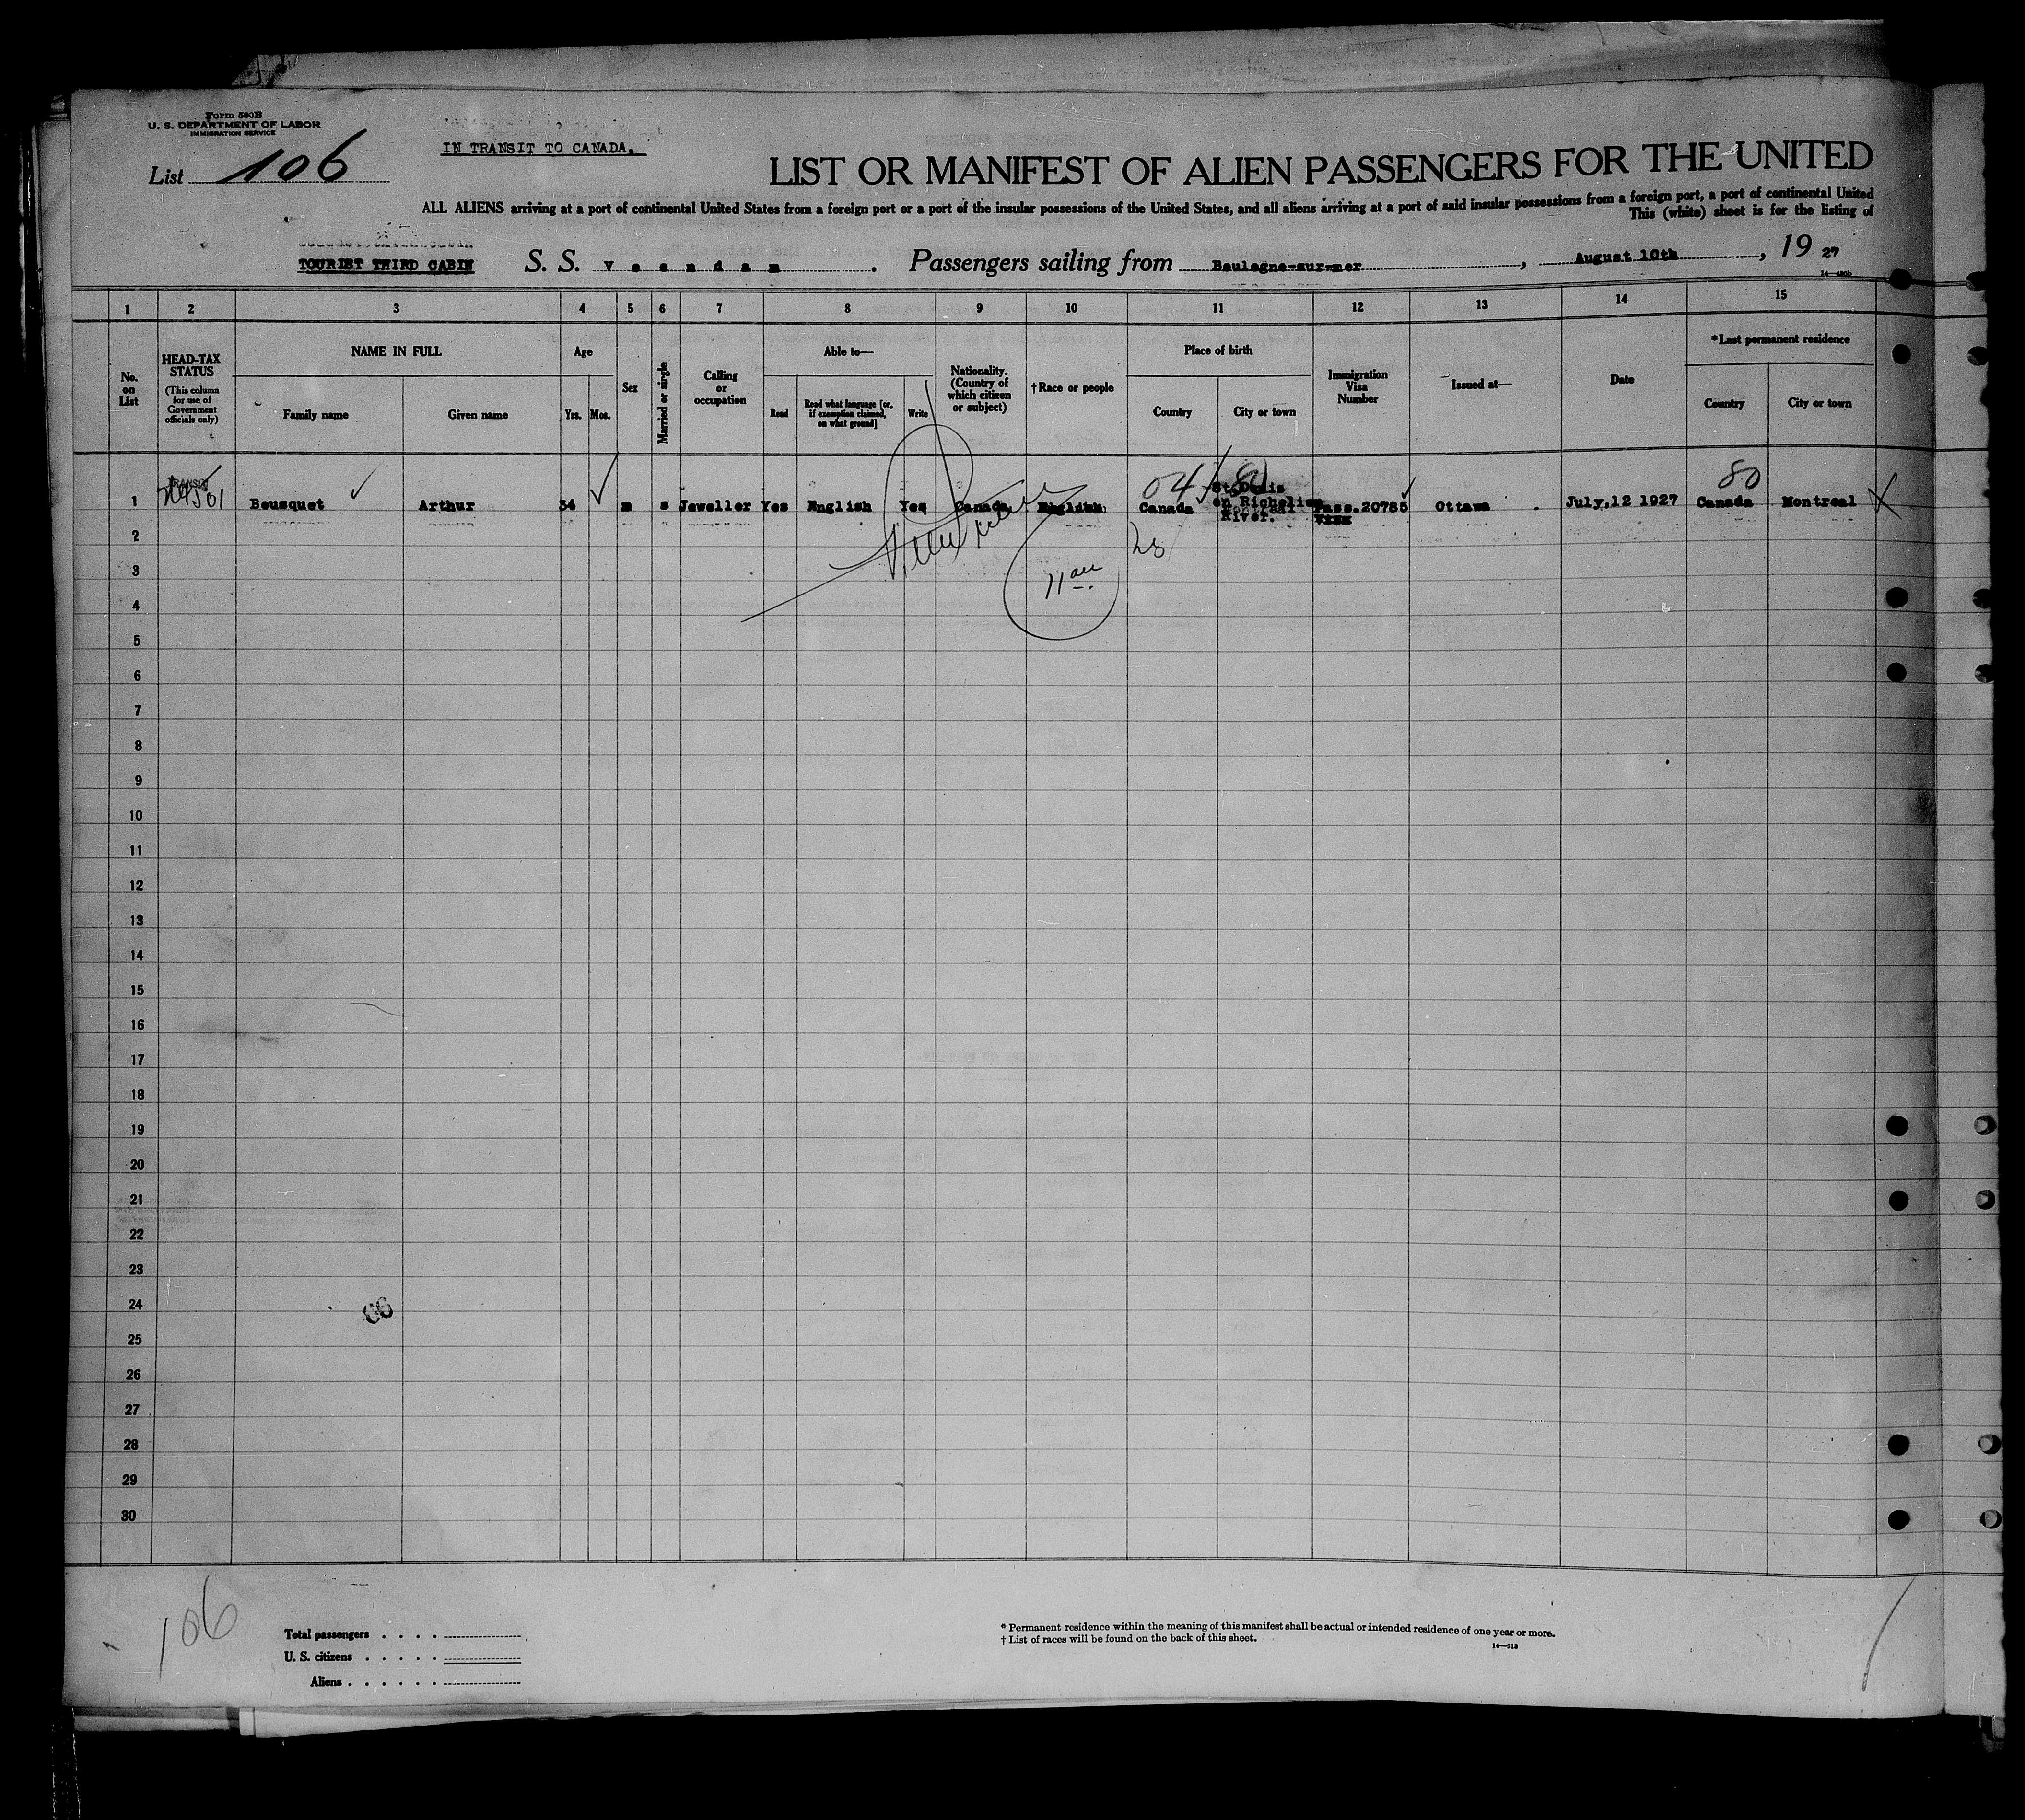 Form 500B
U. S. DEPARTMENT OF LABOR
IMMIGRATION SERVICE
List 106
IN TRANSIT TO CANADA.
LIST OR MANIFEST OF ALIEN PASSENGERS FOR THE UNITED
ALL ALIENS arriving at a port of continental United States from a foreign port or a port of the insular possessions of the United States, and all aliens arriving at a port of said insular possessions from a foreign port, a port of continental United
This (white) sheet is for the listing of
TOURIST THIRD CABIN
S. S. Veendam. Passengers sailing from Boulogne-sur-mer, August 10th, 1927
1 2 3 4 5 6 7 8 9 10 11 12 13 14 15
No. on List
HEAD-TAX STATUS
(This column for use of Government officials only)
NAME IN FULL
Family name
Given name
Age
Yrs.
Mos.
Sex
Married or single
Calling or occupation
Able to—
Read
Read what language [or, if exemption claimed, on what ground]
Write
Nationality. (Country of which citizen or subject)
†Race or people
Place of birth
Country
City or town
Immigration Visa Number
Issued at—
Date
*Last permanent residence
Country
City or town
04 80
TRANSIT
1 Bousquet Arthur 34 m s Jeweller Yes English Yes Canada English Canada St.Denis on Richelieu River. Pass.20785 Ottawa July,12 1927 Canada Montreal
2
3
4
5
6
7
8
9
10
11
12
13
14
15
16
17
18
19
20
21
22
23
24
25
26
27
28
29
30
106
Total passengers . . . .
U. S. citizens . . . . .
Aliens . . . . . .
* Permanent residence within the meaning of this manifest shall be actual or intended residence of one year or more.
† List of races will be found on the back of this sheet.
14—213